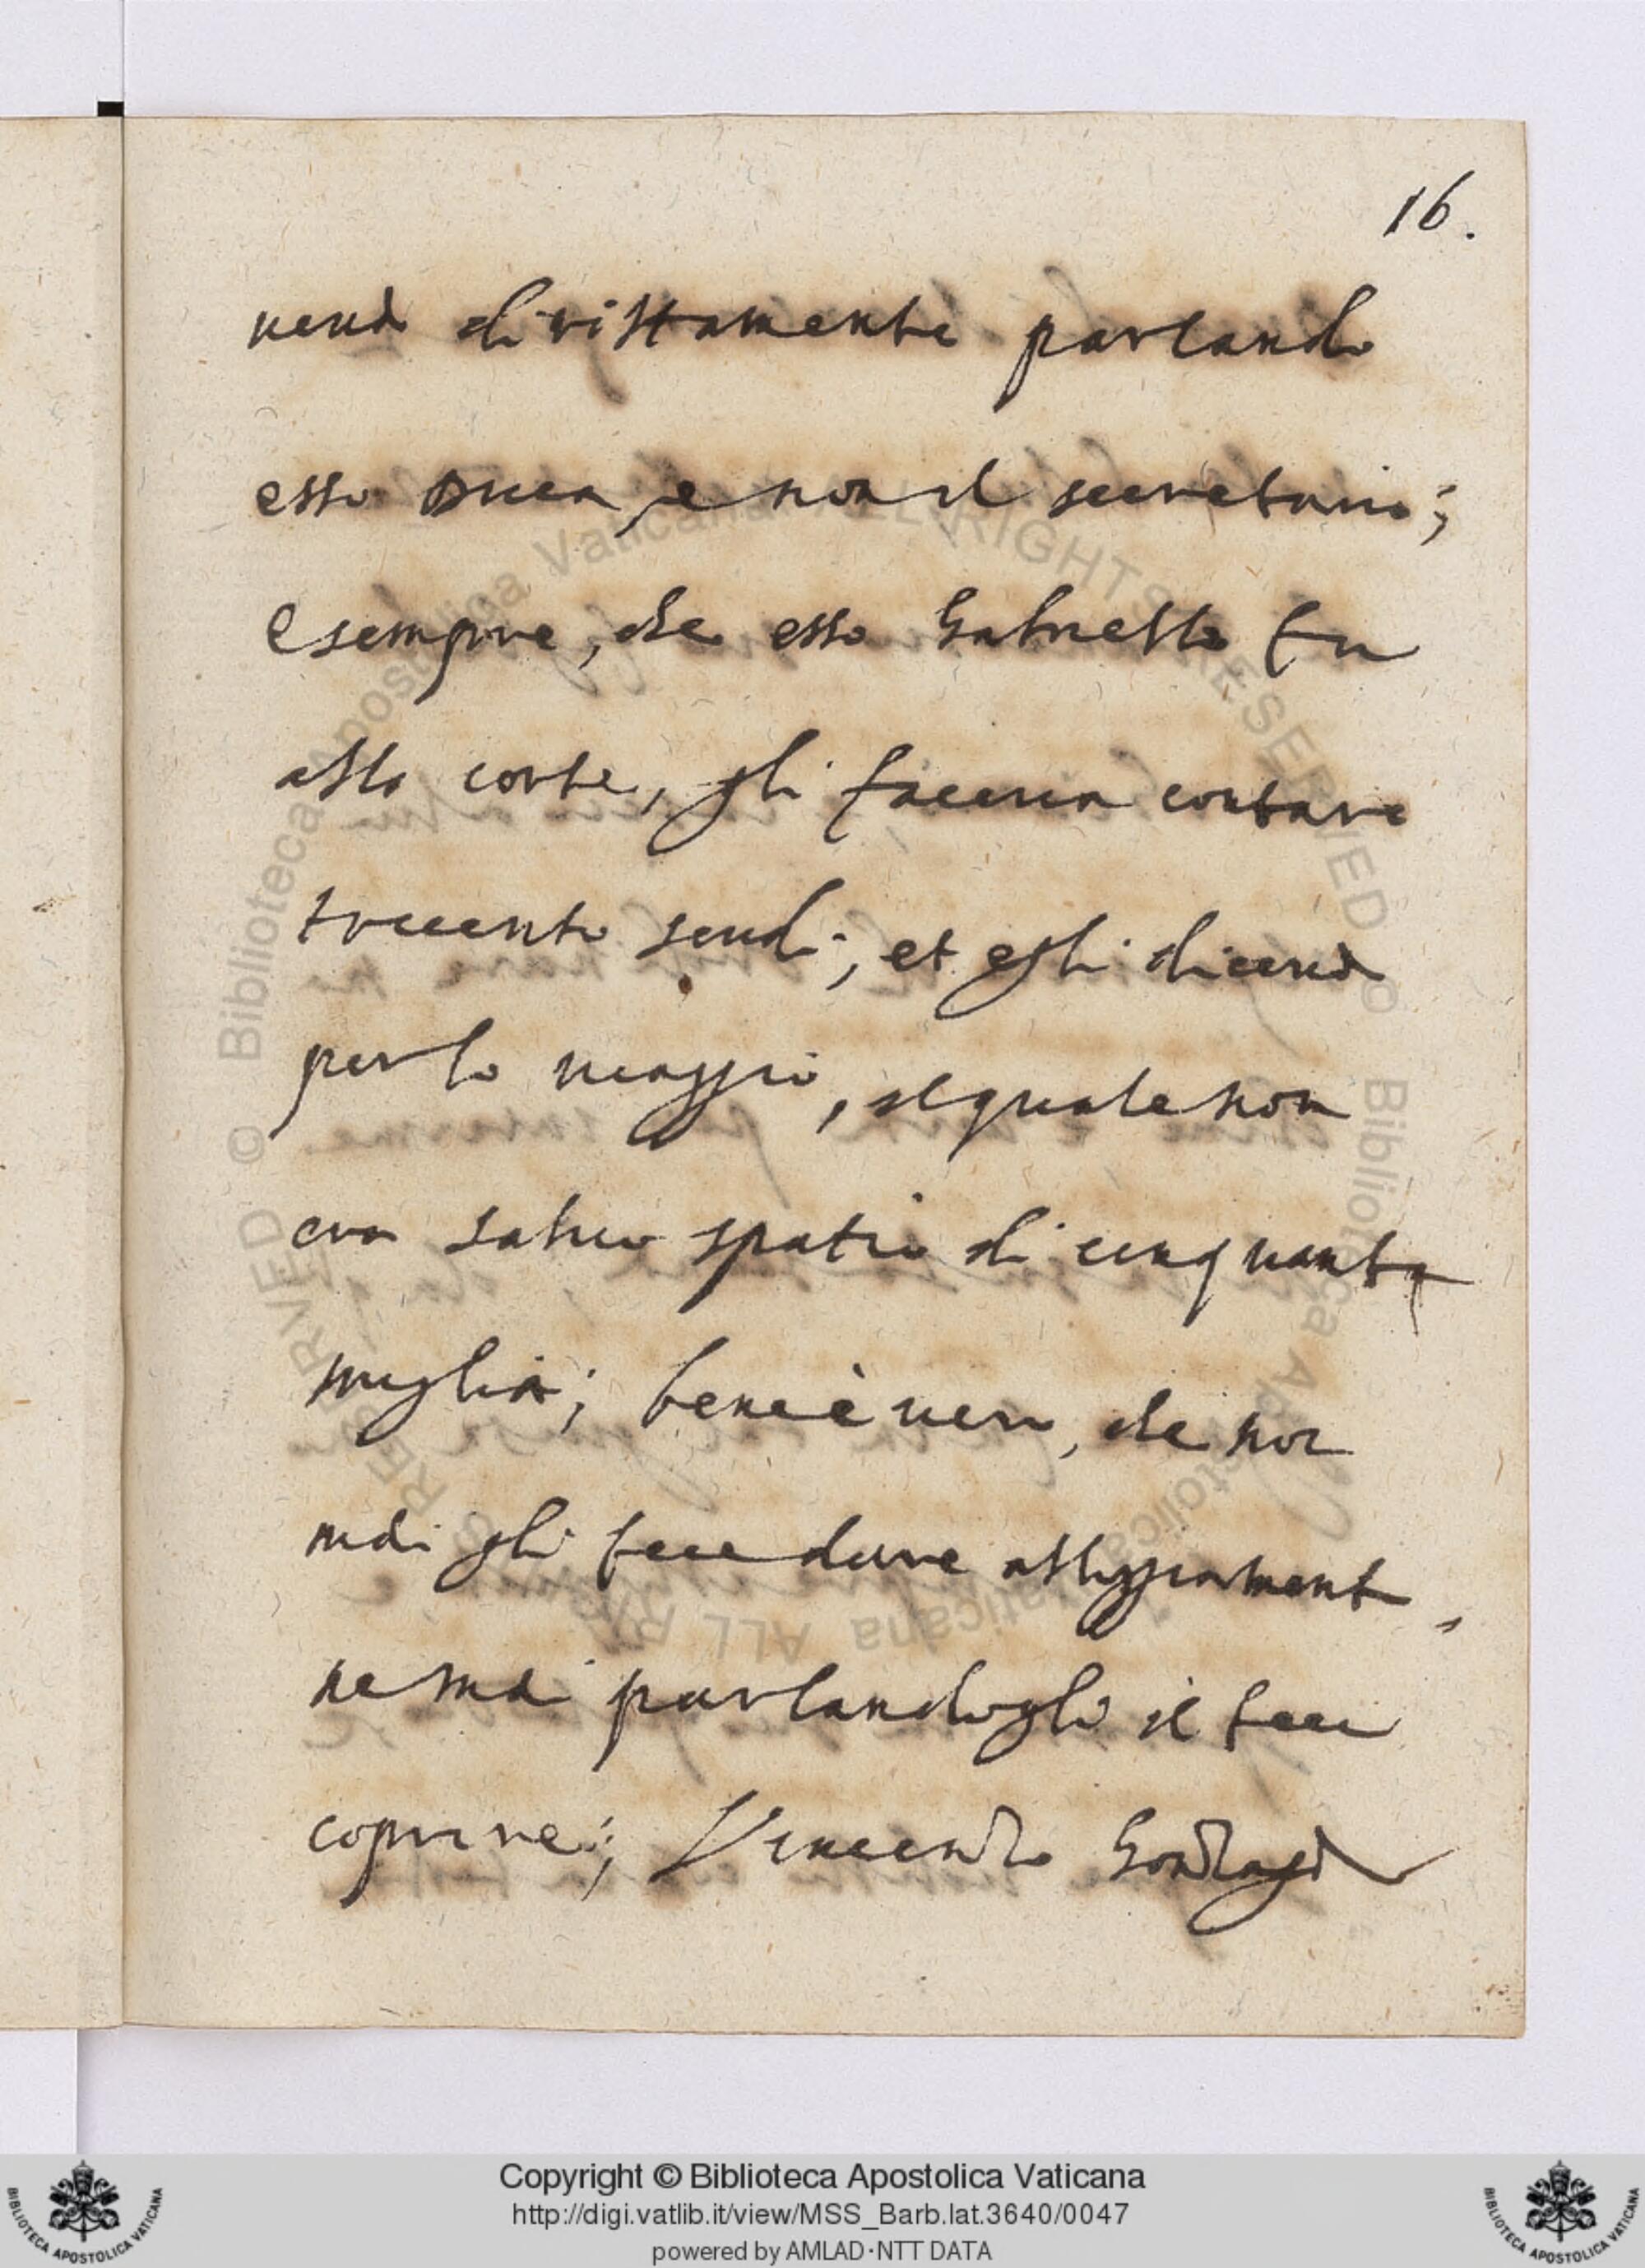 16.
uend dirittamente parlando
esso Duca, e non il secretario;
e sempre, che esso Gabriello fu
alla corte, gli faceua contare
trecento scudi; et egli diceua
per lo uiaggio, il quale non
era saluo spatio di cinquanta
miglia; bene è uero, che non
mai gli fece dare alloggiamento,
ne mai parlandogli il fece
coprire; Vincenzo Gonzaga
© Biblioteca Apostolica Vaticana ALL RIGHTS RESERVED
© Biblioteca Apostolica Vaticana ALL RIGHTS RESERVED
Copyright © Biblioteca Apostolica Vaticana
http://digi.vatlib.it/view/MSS_Barb.lat.3640/0047
powered by AMLAD·NTT DATA
BIBLIOTECA APOSTOLICA VATICANA
BIBLIOTECA APOSTOLICA VATICANA